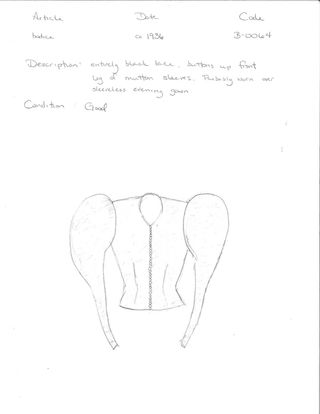 Article Date Code
bodice ca 1936 B-0064
Description: entirely black lace, buttons up front
leg o mutton sleeves. Probably worn over
sleeveless evening gown
Condition: Good